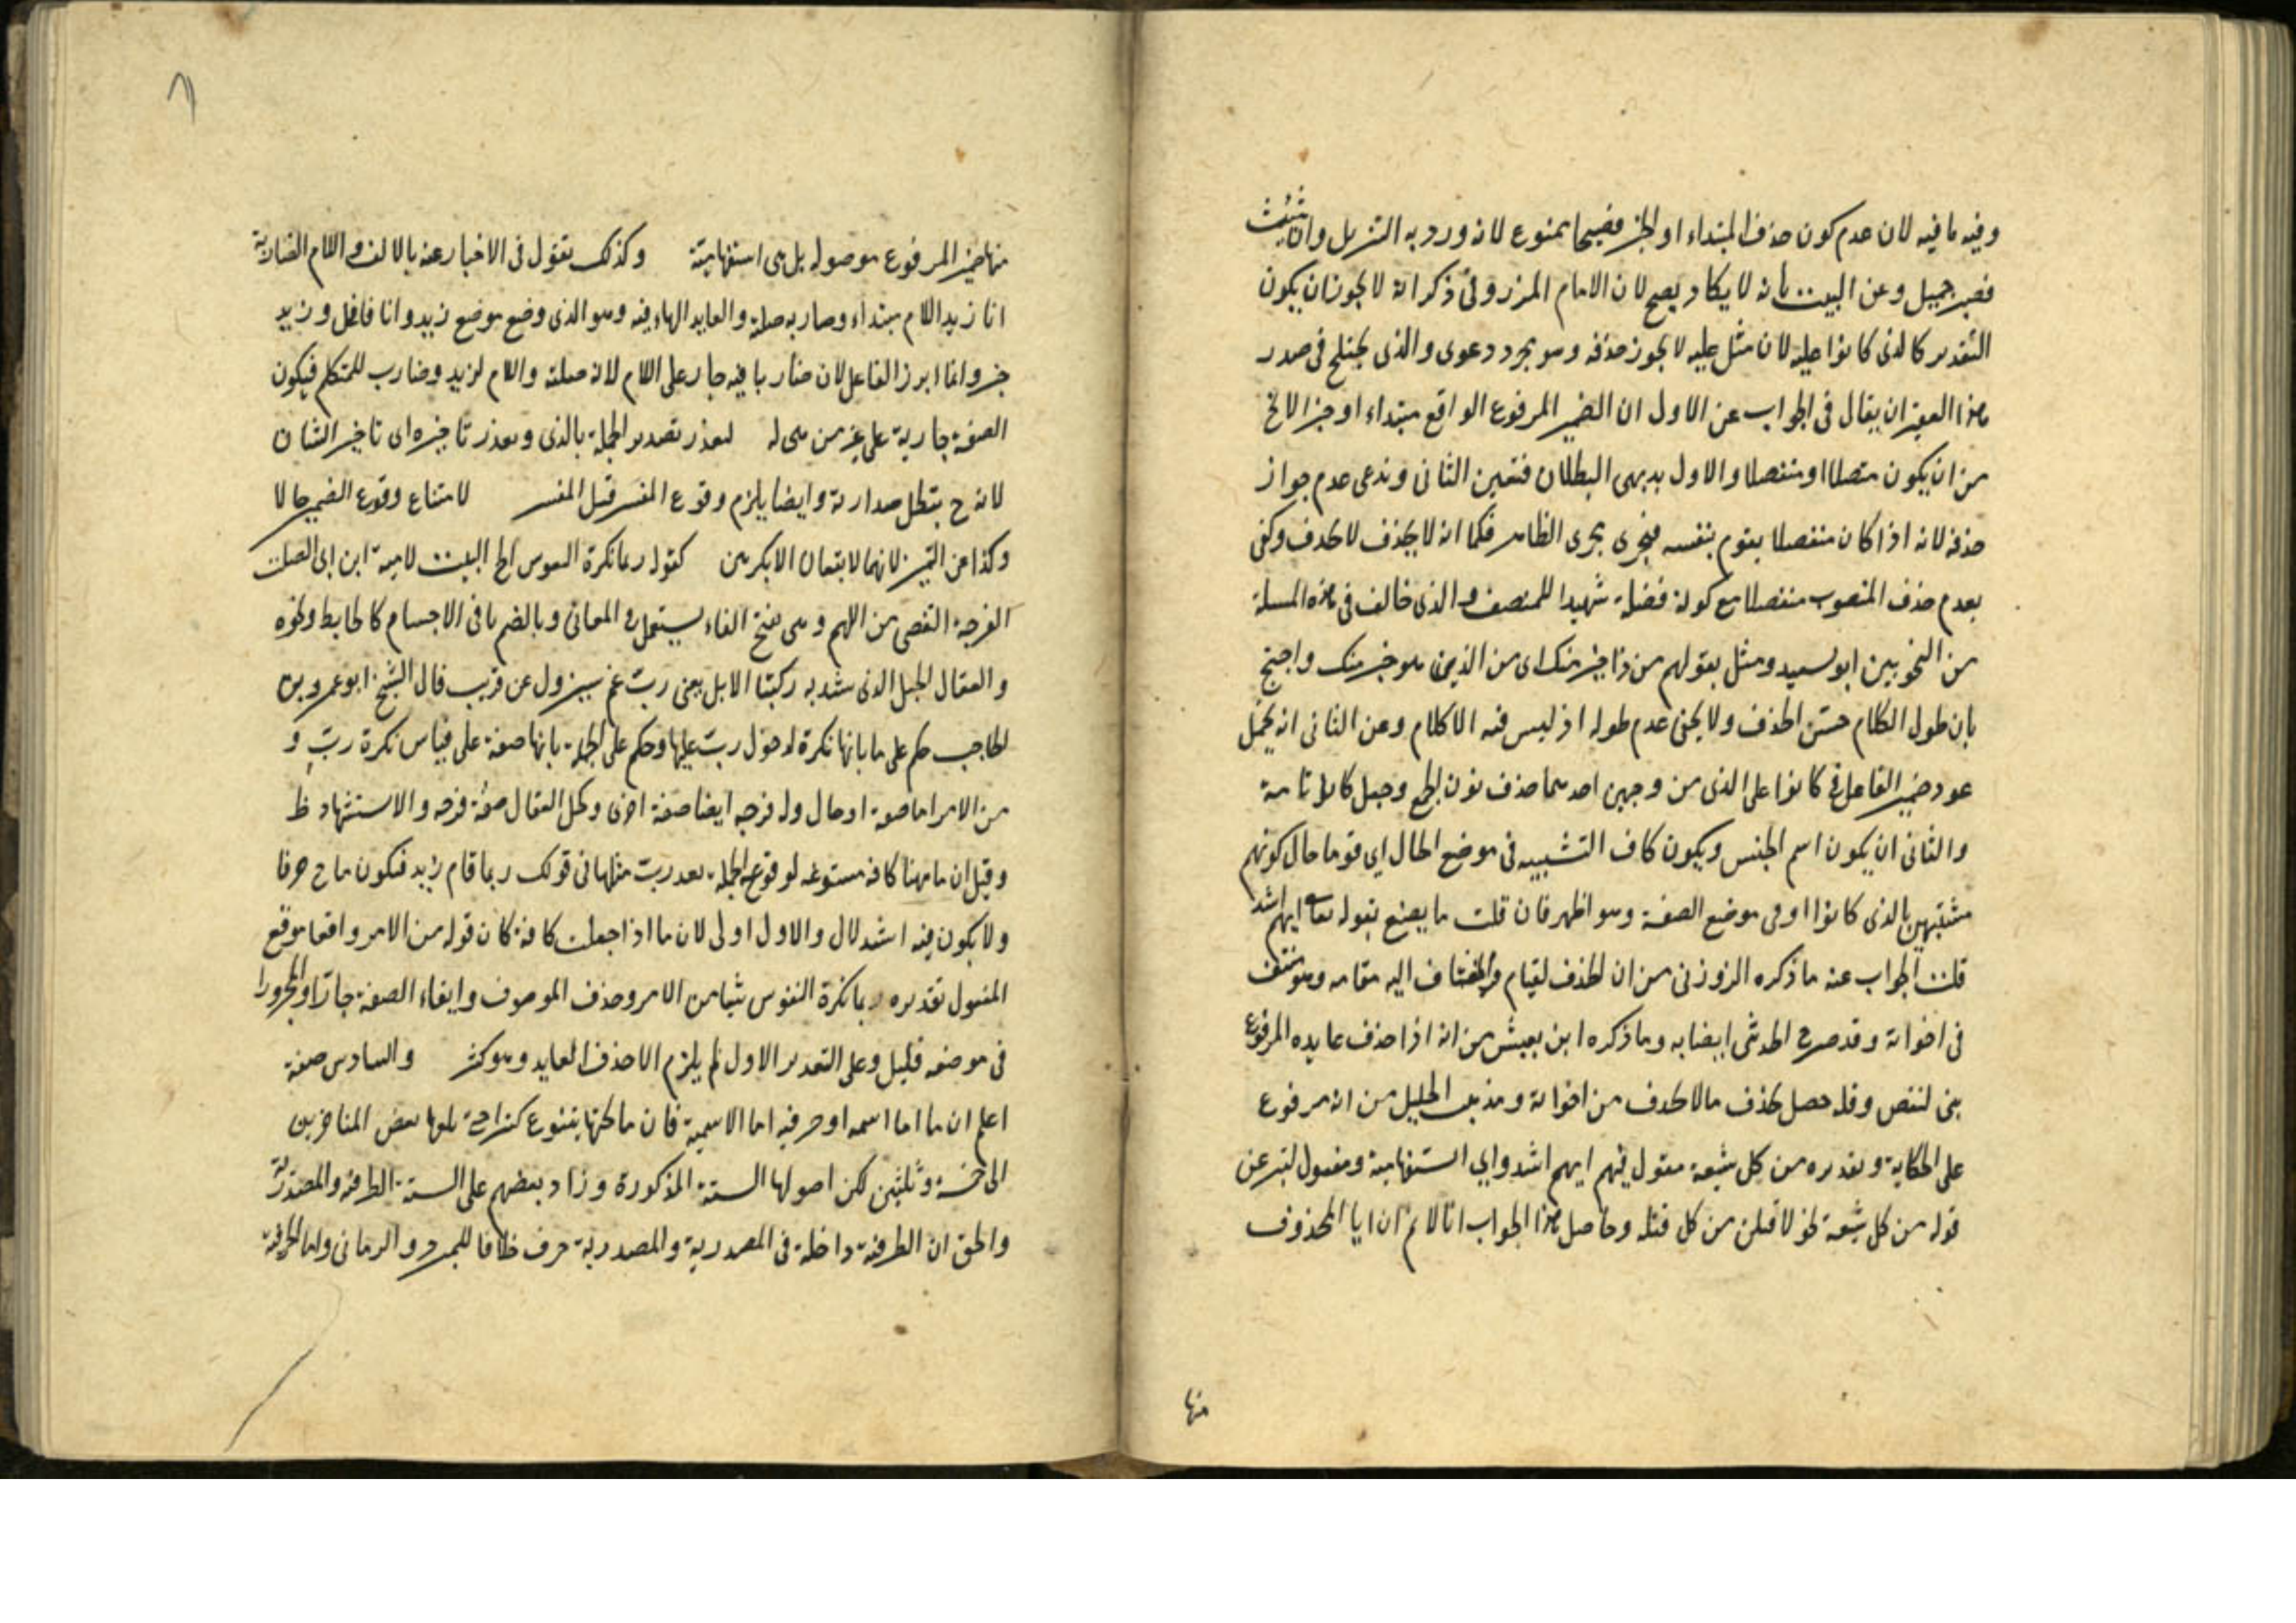 وفيه ما فيه لان عدم كون حذف المبتداء او الخبر فصيحا ممنوع لانه ورد به التنزيل وان شئت
فصبر جميل وعن البيت بانه لا يكاد يصح لان الامام المرزوقى ذكر انه لا يجوز ان يكون
التقدير كالذى كانوا عليه لان مثل عليه لا يجوز حذفه وهو مجرد دعوى والذى يختلج فى صدر
هذا الفقير ان يقال فى الجواب عن الاول ان الضمير المرفوع الواقع مبتداء او خبرا لا يخ
من ان يكون متصلا او منفصلا والاول بديهى البطلان فتعين الثانى وندعى عدم جواز
حذفه لانه اذا كان منفصلا يقوم بنفسه فيجرى مجرى الظاهر فكما انه لا يحذف لا يحذف وكفى
بعدم حذف المنصوب منفصلا مع كونه فضلة شهيدا للمنصف والذى خالف فى هذه المسئلة
من النحويين ابو سعيد ومثل بقولهم من ذا خير منك اى من الذى هو خير منك واحتج
بان طول الكلام حسن الحذف ولا يخفى عدم طوله اذ ليس فيه الا كلام وعن الثانى انه يحتمل
عود ضمير الفاعل فى كانوا على الذى من وجهين احدهما حذف نون الجمع وجعل كانوا تامة
والثانى ان يكون اسم الجنس ويكون كاف التشبيه فى موضع الحال اي قوما حال كونهم
مشتبهين بالذى كانوا او فى موضع الصفة وهو اظهر فان قلت ما يصنع بقوله تعا ايهم اشد
قلت الجواب عنه ما ذكره الزوزنى من ان الحذف لقيام المضاف اليه مقامه وهو منتف
فى اخواته وقد صرح الحديثى ايضا به وما ذكره ابن يعيش من انه اذا حذف عايده المرفوع
بنى لنقص وقلة حصل بحذف ما لا يحذف من اخواته ومذهب الخليل من انه مرفوع
على الحكاية وتقديره من كل شيعة مقول فيهم ايهم اشد واي استفهامية ومفعول لننزعن
قوله من كل شيعة نحو لاقتلن من كل قتله وحاصل هذا الجواب انا لا نم ان ايا المحذوف
منها
منها ضمير المرفوع موصوله بل هى استفهامية وكذلك تقول فى الاخبار عنه بالالف واللام الضاربة
انا زيد اللام مبتداء وصار به صلة والعايد الهاء فيه وهو الذى وضع موضع زيد وانا فاعل وزيد
خبر وانما ابرز الفاعل لان ضاربا فيه جار على اللام لانه صلته واللام لزيد وضارب للمتكلم فيكون
الصفة جارية على غير من هى له لتعذر تصدير الجملة بالذى وتعذر تاخيره اى تاخير الشان
لانه ح يبطل صدارته وايضا يلزم وقوع المفسر قبل المفسر لامتناع وقوع الضمير حالا
وكذا عن التميز لانهما لا يقعان الا نكرتين كقوله ربما تكره النفوس الخ البيت لامية ابن ابى الصلت
الفرجة التفصى من الهم وهى بفتح الفاء يستعمل فى المعانى وبالضم ما فى الاجسام كالحايط ونحوه
والعقال الحبل الذى يشد به ركبتا الابل يعنى ربّ غم سيزول عن قريب قال الشيخ ابو عمرو بن
الحاجب حكم على ما بانها نكرة لدخول ربّ عليها وحكم على الجملة بانها صفة على قياس نكرة ربّ و
من الامر اما صفة او حال وله فرجه ايضا صفة اخرى وكحل العقال صفة فرجه والاستشهاد ظ
وقيل ان ما ههنا كافة مستوغه لوقوع الجملة بعد ربّ مثلها فى قولك ربما قام زيد فيكون ما ح حرفا
ولا يكون فيه استدلال والاول اولى لان ما اذا جعلت كافة كان قوله من الامر واقعا موقع
المفعول تقديره ربما تكره النفوس شيا من الامر وحذف الموصوف وابقاء الصفة جارّا ومجرورا
فى موضعه قليل وعلى التقدير الاول لم يلزم الا حذف العايد وهو كثير والسادس صفة
اعلم ان ما اما اسمية او حرفية اما الاسمية فان ما تحتها يتنوع كثيرا حتى بلغها بعض المتاخرين
الى خمسة وثلثين لكن اصولها الستة المذكورة وزاد بعضهم على الستة الظرفية والمصدرية
والحق ان الظرفية داخلة فى المصدرية والمصدرية حرف خلافا للمبرد والرمانى واما الحرفية